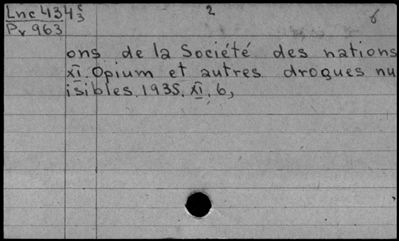 Lnc 434 2
Pv 963
ons de la Société des nations
XI. Opium et autres drogues nu
isibles. 1935. XI. 6,